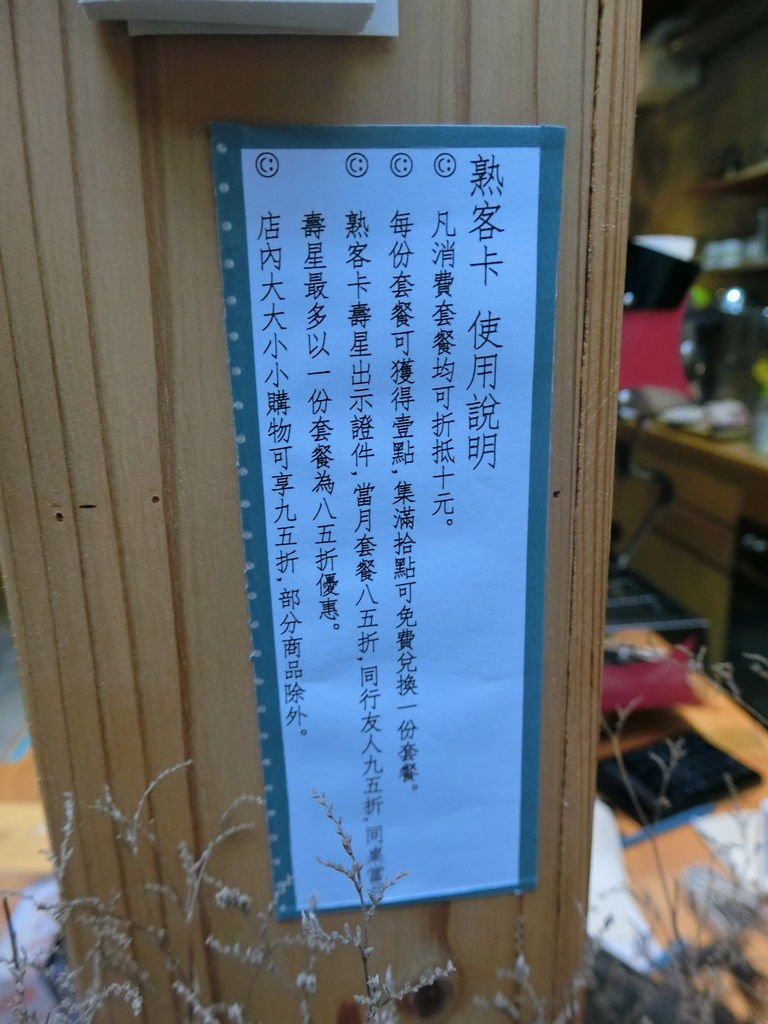 熟客卡 使用說明
凡消費套餐均可折抵十元。
每份套餐可獲得壹點,集滿拾點可免費兌換一份套餐。
熟客卡壽星出示證件,當月套餐八五折,同行友人九五折,同桌當
壽星最多以一份套餐為八五折優惠。
店內大大小小購物可享九五折,部分商品除外。